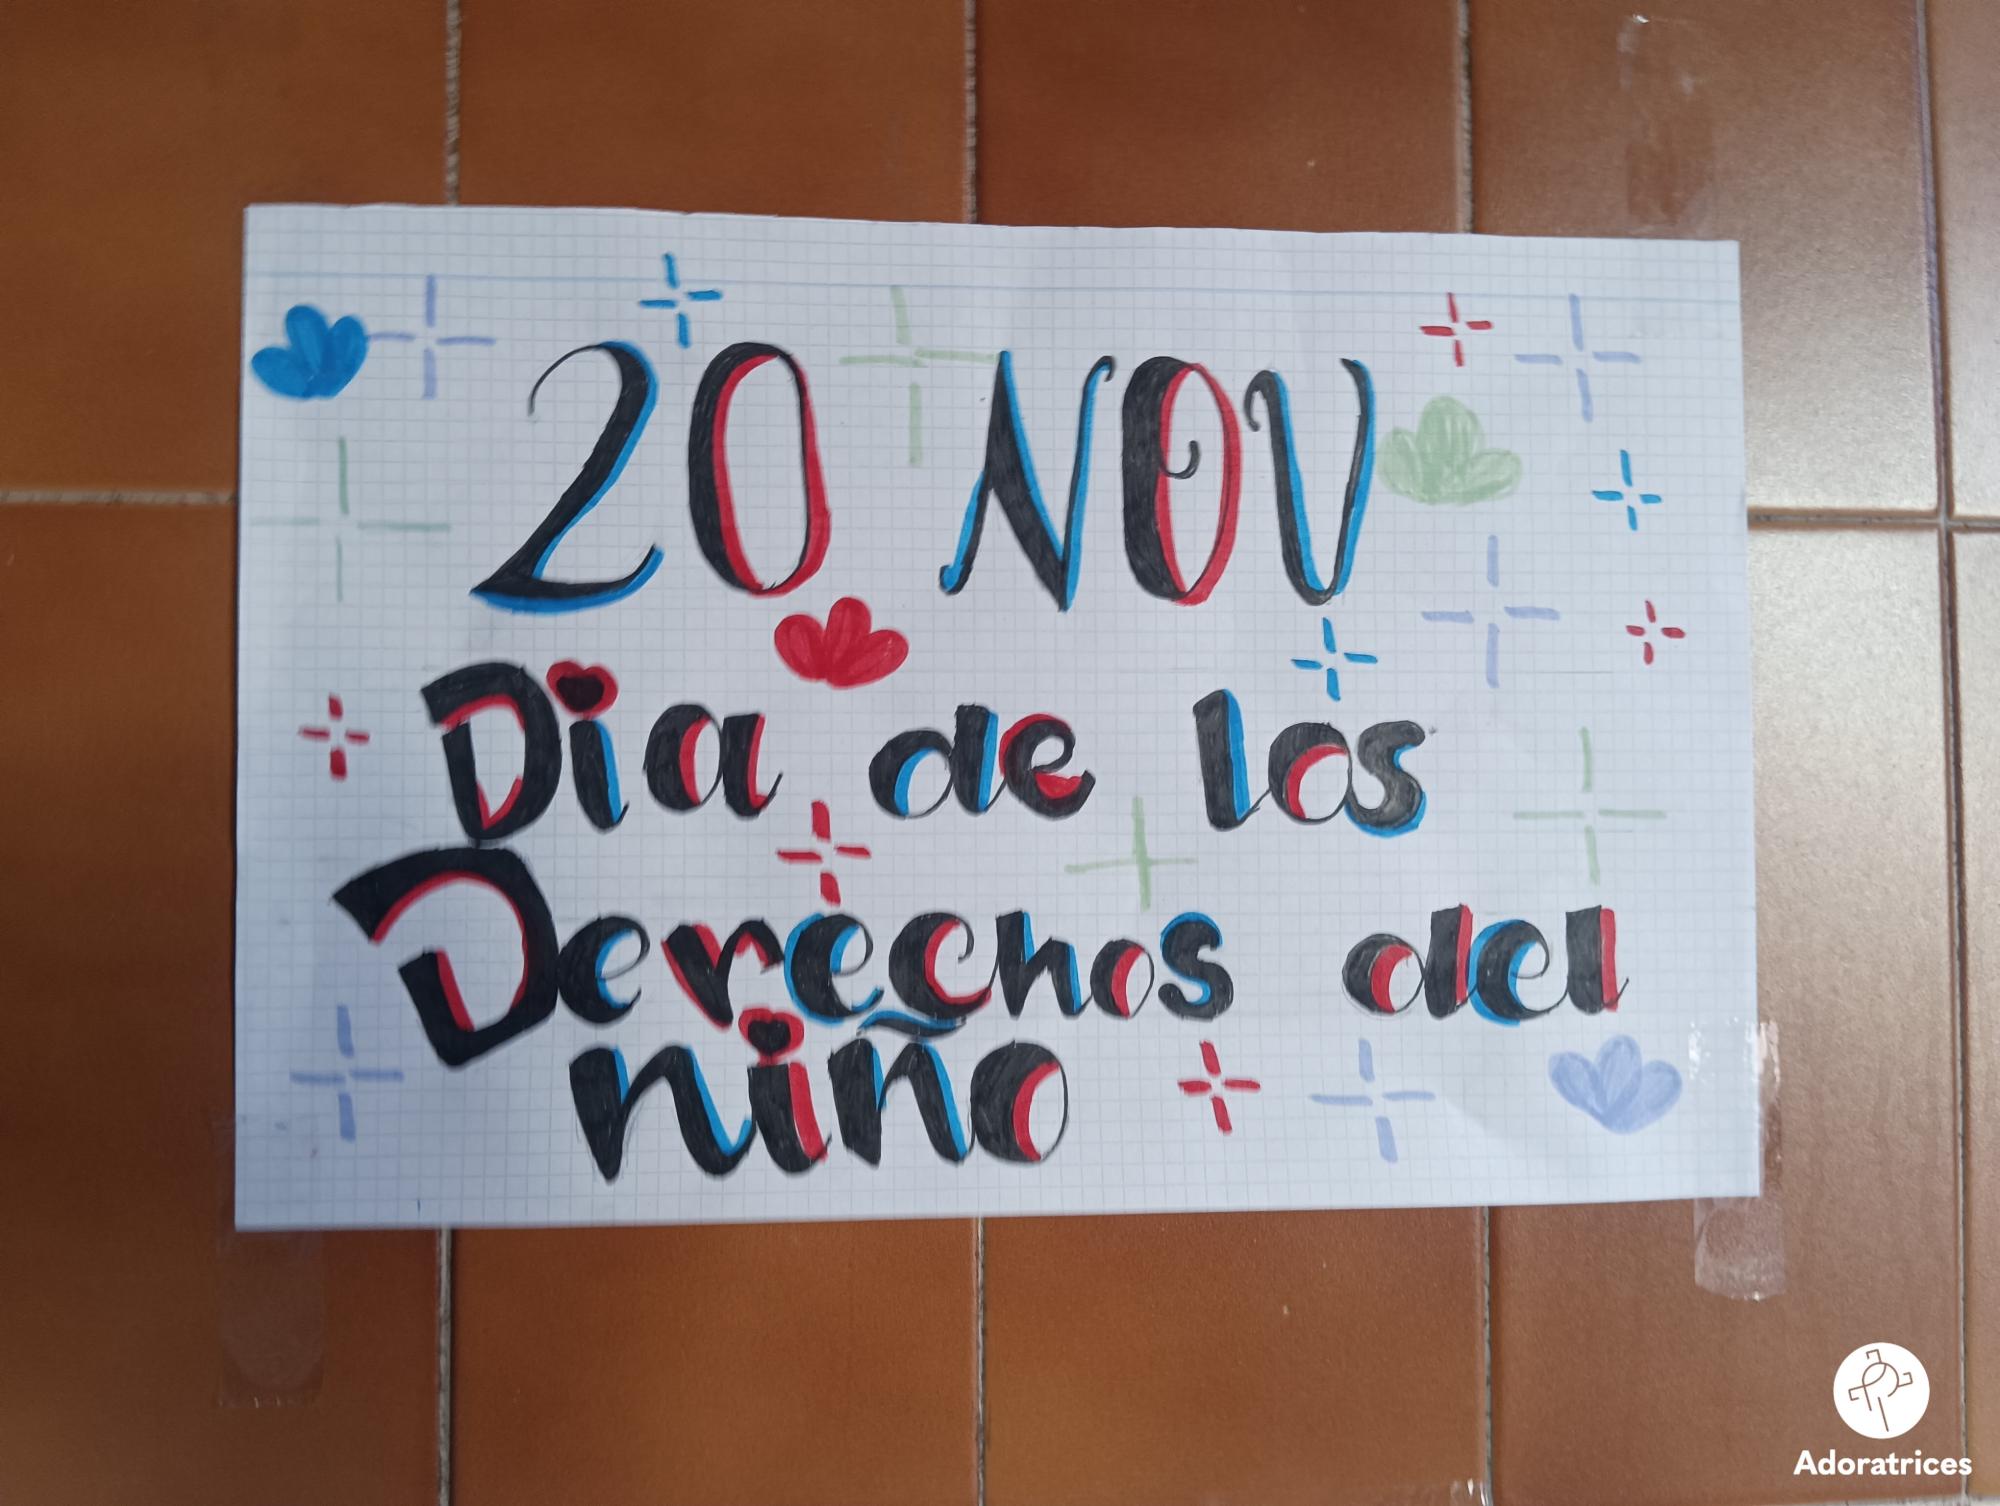 20 NOV
Dia de los
Derechos del
niño
Adoratrices